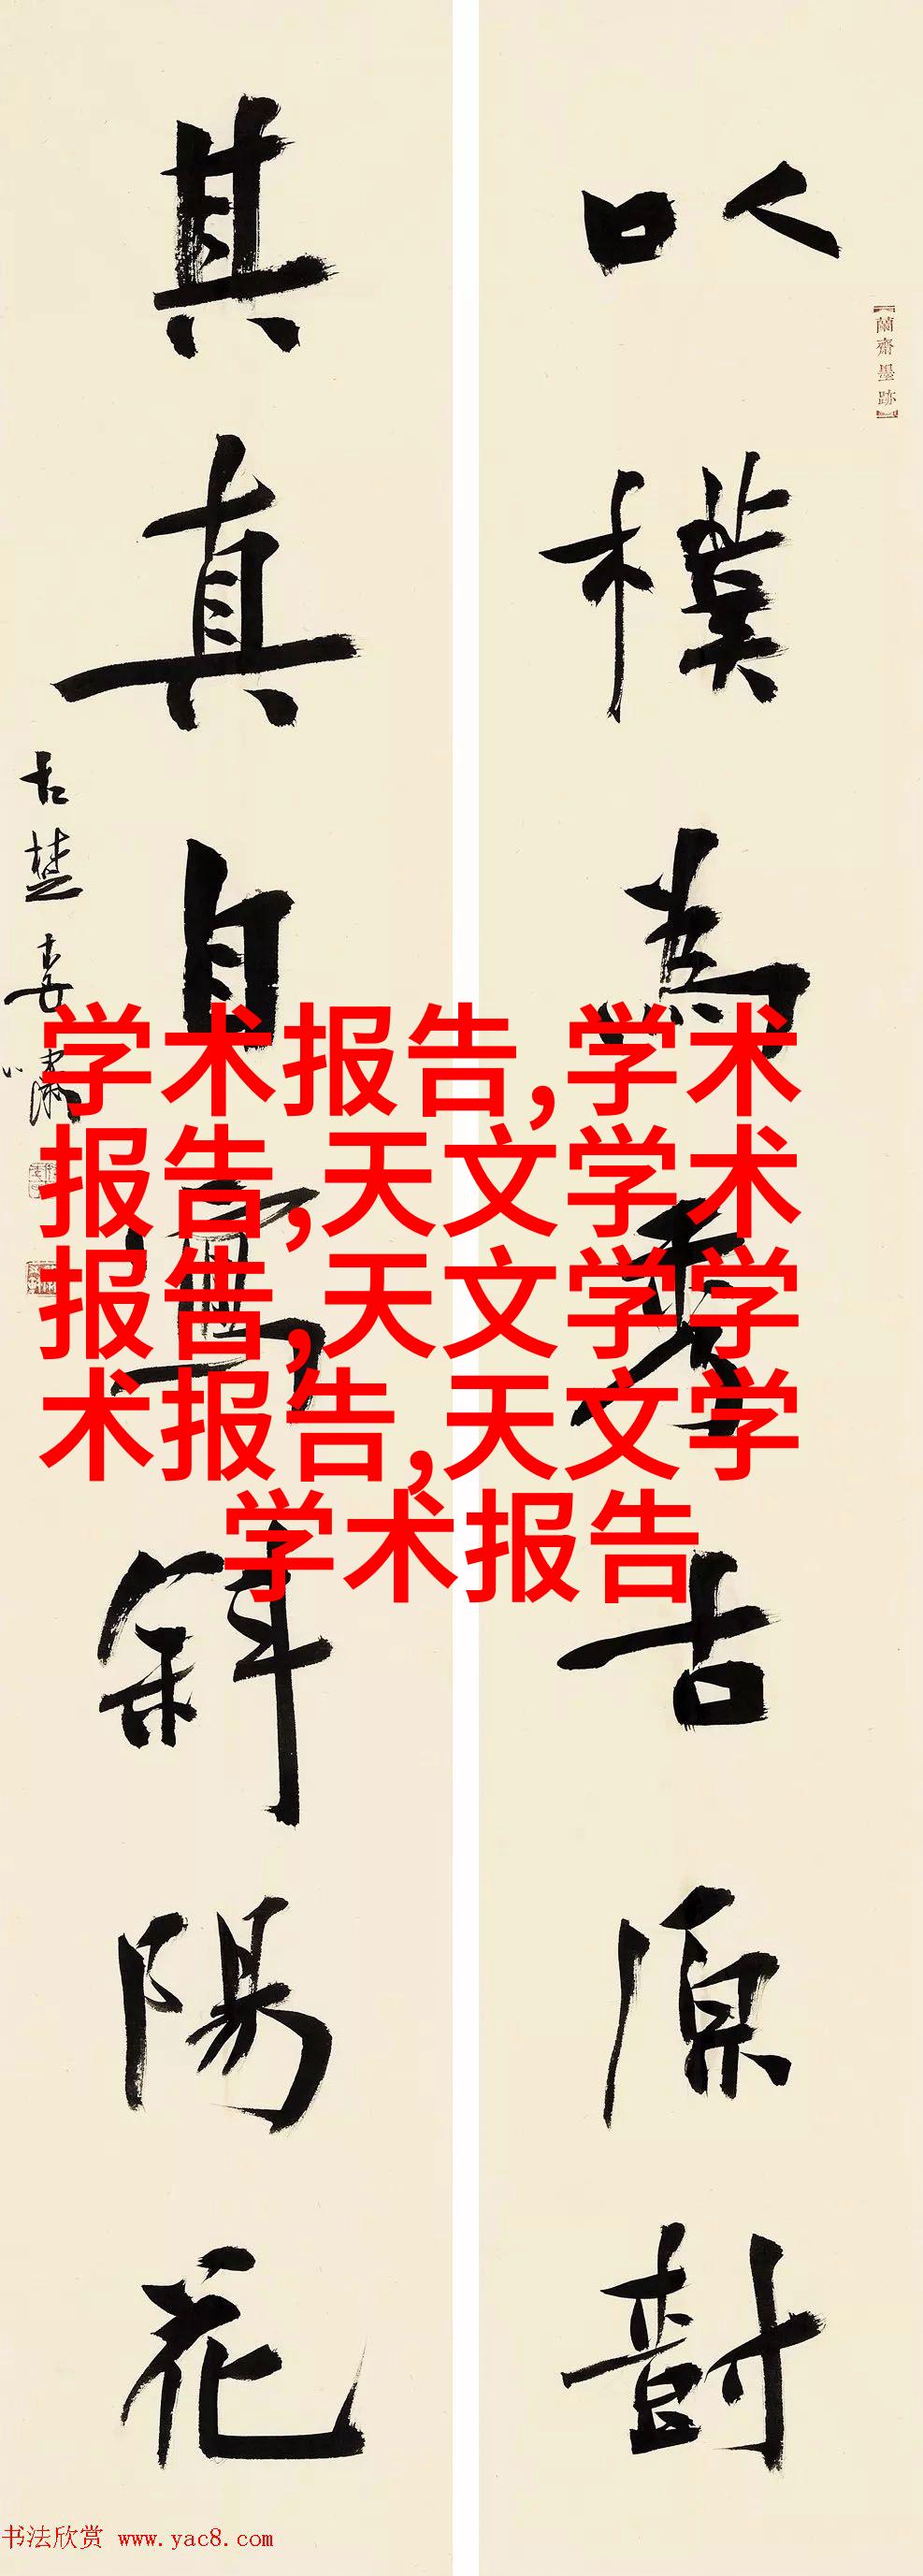 以樸為秀古原樹
其真自寫斜陽花
古楚 婁
【蘭齋墨跡】
学术报告,学术
报告,天文学术
报告,天文学学
术报告,天文学
学术报告
书法欣赏 www.yac8.com